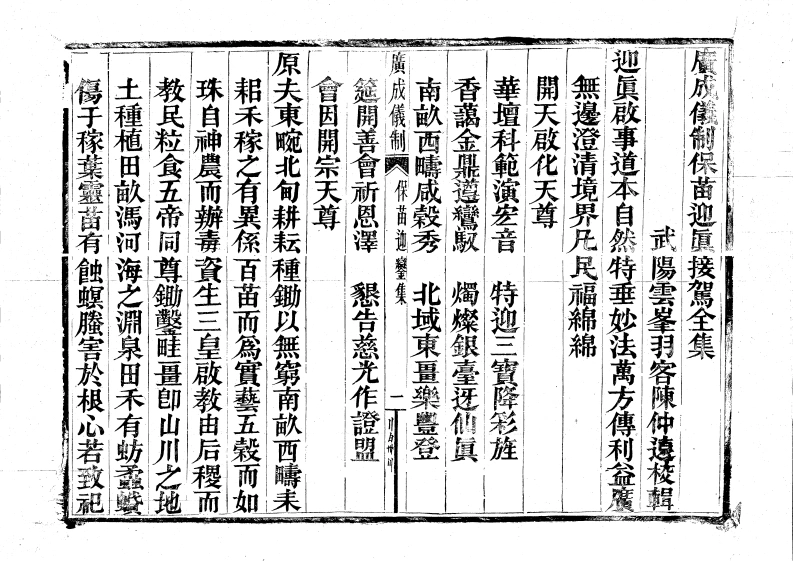 廣成儀制保苗迎眞接駕全集
武陽雲峯羽客陳仲遠校輯
迎眞啟事道本自然特垂妙法萬方傳利益廣
無邊澄清境界凡民福綿綿
開天啟化天尊
華壇科範演宏音　特迎三寶降彩旌
香藹金鼎遵鸞馭　燭燦銀臺迓仙眞
南畝西疇咸榖秀　北域東畺樂豐登
廣成儀制　保苗迎鑾集　二
筵開善會祈恩澤　懇告慈光作證盟
會因開宗天尊
原夫東畹北甸耕耘種鋤以無窮南畝西疇耒
耜禾稼之有異係百苗而為實藝五榖而如
珠自神農而辦毒資生三皇啟教由后稷而
教民粒食五帝同尊鋤鑿畦畺卽山川之地
土種植田畝馮河海之淵泉田禾有蚄蟊蟻
傷于稼葉靈苗有蝕螟螣害於根心若致祀